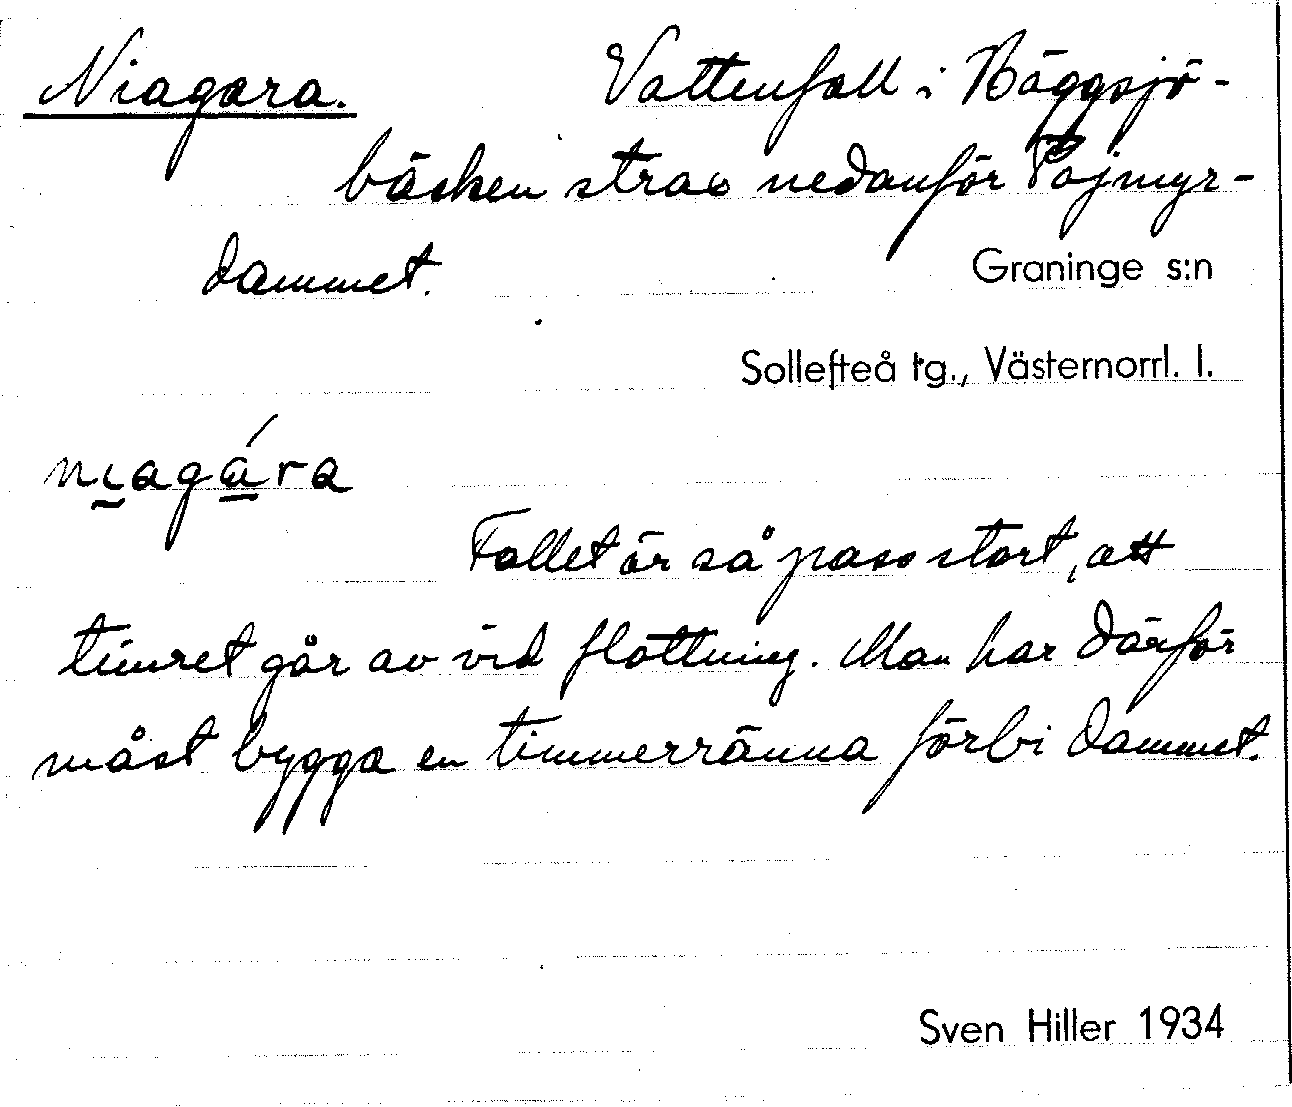 Niagara. Vattenfall i Bäggsjö-
bäcken strax nedanför Pajmyr-
dammet.
Graninge s:n
Sollefteå tg., Västernorrl. l.
niagára
Fallet är så pass stort, att
timret går av vid flottning. Man har därför
måst bygga en timmerränna förbi dammet.
Sven Hiller 1934